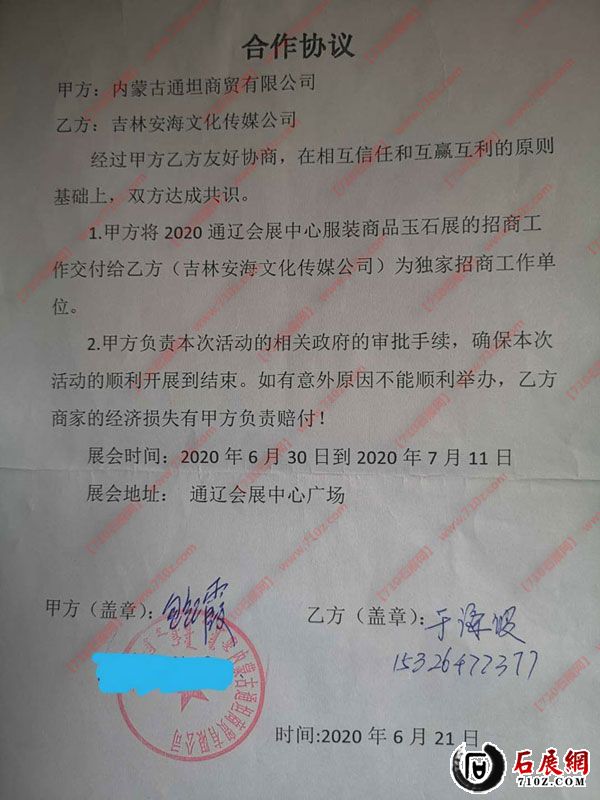 合作协议
甲方：内蒙古通坦商贸有限公司
乙方：吉林安海文化传媒公司
经过甲方乙方友好协商，在相互信任和互赢互利的原则
基础上，双方达成共识。
1.甲方将 2020 通辽会展中心服装商品玉石展的招商工
作交付给乙方（吉林安海文化传媒公司）为独家招商工作单
位。
2.甲方负责本次活动的相关政府的审批手续，确保本次
活动的顺利开展到结束。如有意外原因不能顺利举办，乙方
商家的经济损失有甲方负责赔付！
展会时间：2020 年 6 月 30 日到 2020 年 7 月 11 日
展会地址： 通辽会展中心广场
甲方（盖章）：
乙方（盖章）：
15326477377
内蒙古通坦商贸有限公司
时间:2020 年 6 月 21 日
石展網
710z.com